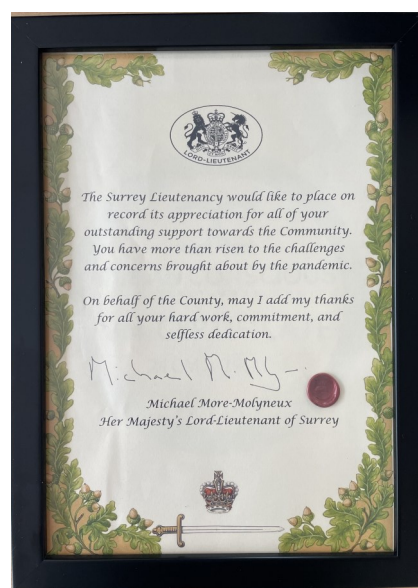 LORD-LIEUTENANT
The Surrey Lieutenancy would like to place on
record its appreciation for all of your
outstanding support towards the Community.
You have more than risen to the challenges
and concerns brought about by the pandemic.
On behalf of the County, may I add my thanks
for all your hard work, commitment, and
selfless dedication.
Michael M. Mly
Michael More-Molyneux
Her Majesty's Lord-Lieutenant of Surrey